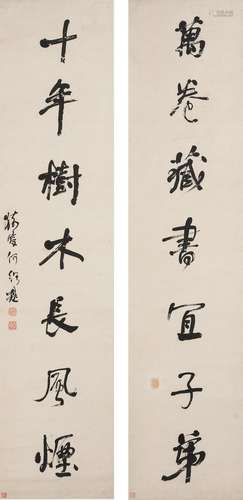 萬卷藏書宜子弟
十年樹木長風煙
蝯叟何紹基